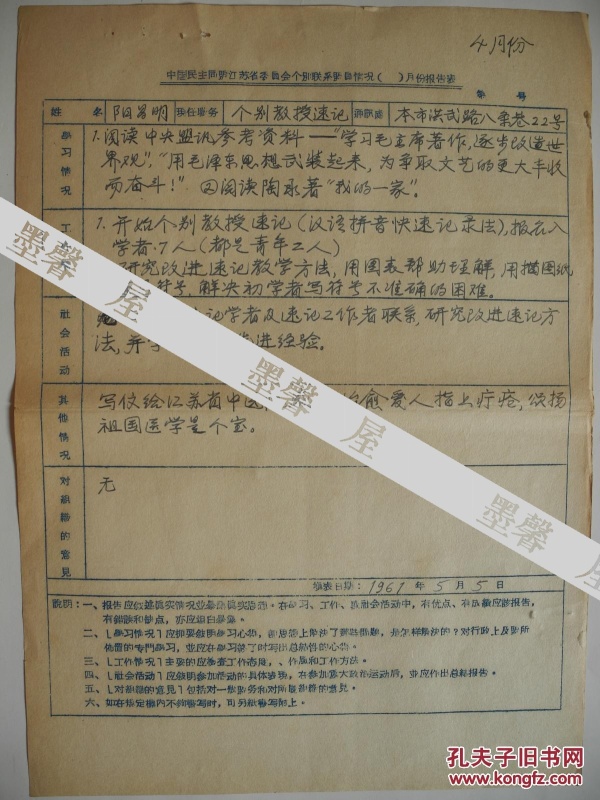 4月份
中国民主同盟江苏省委员会个别联系盟员情况( )月份报告表
第 号
姓 名 阳昌明 担任职务 个别教授速记 通讯处 本市洪武路八条巷22号
学习情况
1.阅读中央盟讯参考资料——"学习毛主席著作,逐步改造世
界观","用毛泽东思想武装起来,为争取文艺的更大丰收
而奋斗!" 又阅读陶承著"我的一家"。
工
1.开始个别教授速记(汉语拼音快速记录法),报名入
学者7人(都是青年工人)
研究改进速记教学方法,用图表帮助理解,用描图纸
符号,解决初学者写符号不准确的困难。
社会活动
记学者及速记工作者联系,研究改进速记方
法,并 进经验。
其他情况
写 给江苏省中医 愈爱人指上疔疮,颂扬
祖国医学是个宝。
对组织的意见
无
填表日期:1961年5月5日
说明:一、报告应叙述真实情况 在学习、工作、及社会活动中,有优点、有 报告,
有错误和缺点,亦应坦白暴露。
二、[学习情况]应扼要叙明学习心得, 解决了 问题,是怎样解决的?对行政上及盟所
布置的专门学习,並应在学习 了时写出总结性的心得。
三、[工作情况]主要的应 工作态度、 作风和工作方法。
四、[社会活动]应叙明参加活动的具体 ,在参加重大政治运动后,並应作出总结报告。
五、[对组织的意见]包括对一般盟务和对 的意见。
六、如在指定栏内不够 写时,可另纸 写附上。
墨馨屋
墨馨屋
墨馨屋
孔夫子旧书网
www.kongfz.com